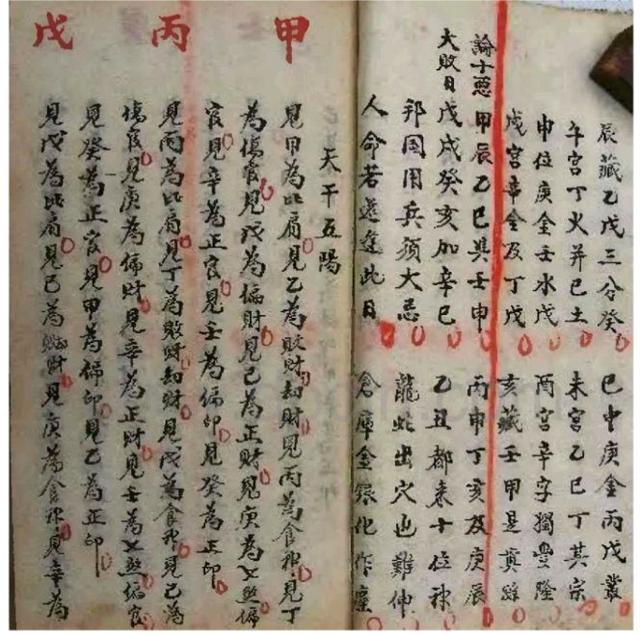 辰藏乙戊三分癸 巳中庚金丙戊叢
午宮丁火并己土 未宮乙己丁其宗
申位庚金壬水戊 酉宮辛字獨豐隆
戌宮辛金及丁戊 亥藏壬甲是真踪
論十惡
大敗日
甲辰乙巳與壬申 丙申丁亥及庚辰
戊戌癸亥加辛巳 乙丑都來十位神
邦国用兵須大忌 龍蛇出穴也難伸
人命若還逢此日 倉庫金銀化作塵
天干五陽
甲
見甲為比肩見乙為敗財劫財見丙為食神見丁
為傷官見戊為偏財見己為正財見庚為七煞偏
官見辛為正官見壬為偏印見癸為正印
丙
見丙為比肩見丁為敗財劫財見戊為食神見己為
傷官見庚為偏財見辛為正財見壬為七煞偏官
見癸為正官見甲為偏印見乙為正印
戊
見戊為比肩見己為財見庚為食神見辛為